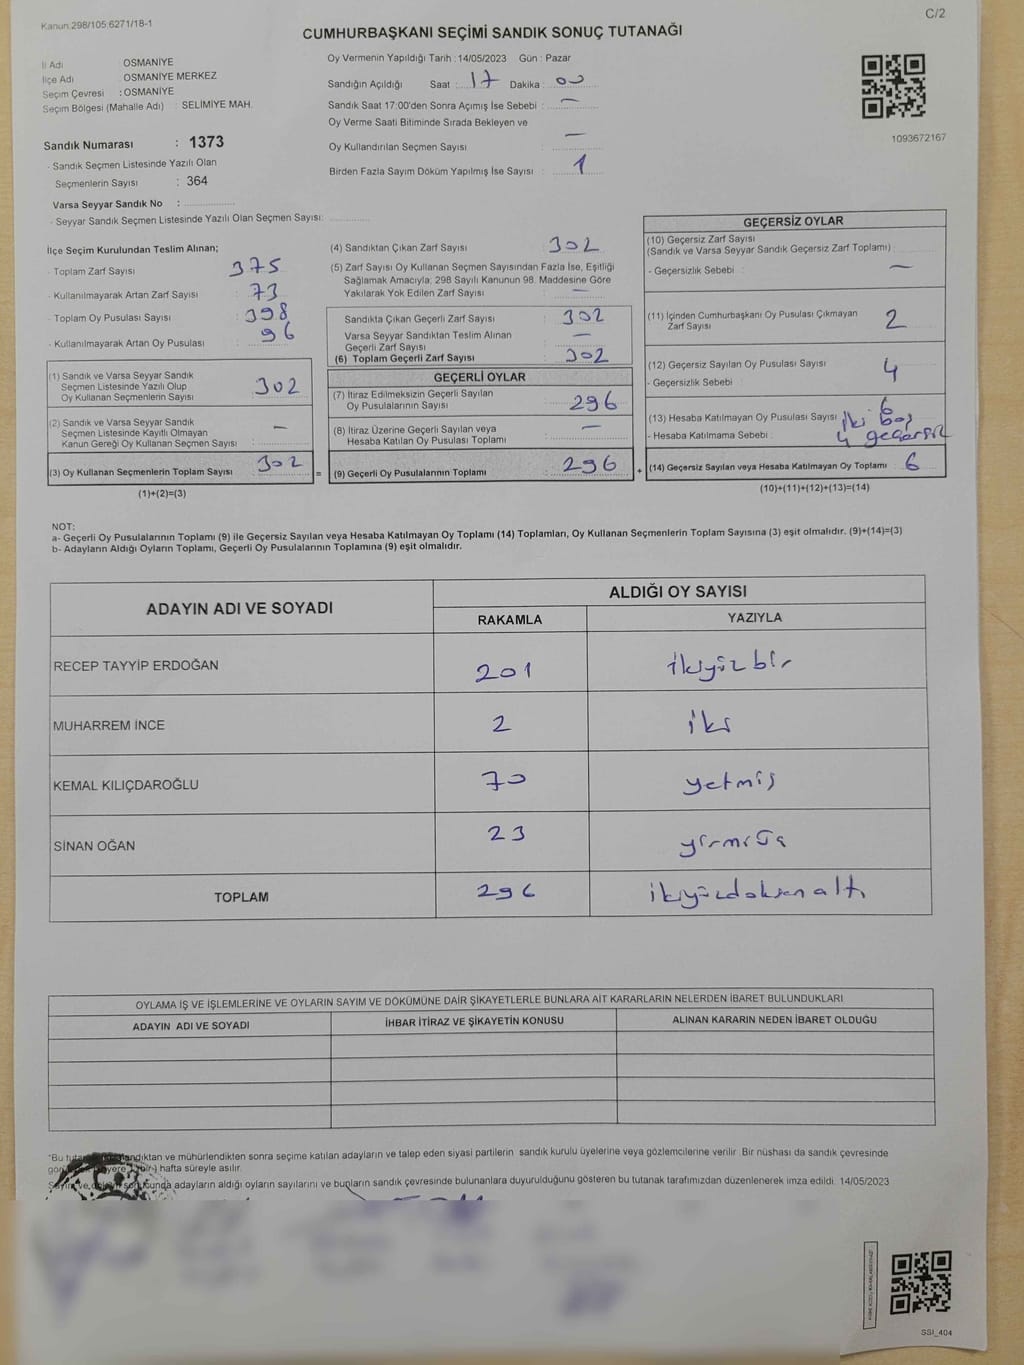 Kanun:298/105,6271/18-1
C/2
CUMHURBAŞKANI SEÇİMİ SANDIK SONUÇ TUTANAĞI
İl Adı : OSMANİYE
İlçe Adı : OSMANİYE MERKEZ
Seçim Çevresi : OSMANİYE
Seçim Bölgesi (Mahalle Adı) : SELİMİYE MAH.
Sandık Numarası : 1373
- Sandık Seçmen Listesinde Yazılı Olan
Seçmenlerin Sayısı : 364
Varsa Seyyar Sandık No :
- Seyyar Sandık Seçmen Listesinde Yazılı Olan Seçmen Sayısı:
Oy Vermenin Yapıldığı Tarih : 14/05/2023 Gün : Pazar
Sandığın Açıldığı Saat : 17 Dakika : 00
Sandık Saat 17:00'den Sonra Açımış İse Sebebi : —
Oy Verme Saati Bitiminde Sırada Bekleyen ve
Oy Kullandırılan Seçmen Sayısı : —
Birden Fazla Sayım Döküm Yapılmış İse Sayısı : 1
1093672167
İlçe Seçim Kurulundan Teslim Alınan;
- Toplam Zarf Sayısı : 375
- Kullanılmayarak Artan Zarf Sayısı : 73
- Toplam Oy Pusulası Sayısı : 398
- Kullanılmayarak Artan Oy Pusulası : 96
(1) Sandık ve Varsa Seyyar Sandık
Seçmen Listesinde Yazılı Olup
Oy Kullanan Seçmenlerin Sayısı : 302
(2) Sandık ve Varsa Seyyar Sandık
Seçmen Listesinde Kayıtlı Olmayan
Kanun Gereği Oy Kullanan Seçmen Sayısı : —
(3) Oy Kullanan Seçmenlerin Toplam Sayısı : 302 =
(1)+(2)=(3)
(4) Sandıktan Çıkan Zarf Sayısı : 302
(5) Zarf Sayısı Oy Kullanan Seçmen Sayısından Fazla İse, Eşitliği
Sağlamak Amacıyla; 298 Sayılı Kanunun 98. Maddesine Göre
Yakılarak Yok Edilen Zarf Sayısı : —
Sandıkta Çıkan Geçerli Zarf Sayısı : 302
Varsa Seyyar Sandıktan Teslim Alınan
Geçerli Zarf Sayısı : —
(6) Toplam Geçerli Zarf Sayısı : 302
GEÇERLİ OYLAR
(7) İtiraz Edilmeksizin Geçerli Sayılan
Oy Pusulalarının Sayısı : 296
(8) İtiraz Üzerine Geçerli Sayılan veya
Hesaba Katılan Oy Pusulası Toplamı : —
(9) Geçerli Oy Pusulalarının Toplamı : 296 +
GEÇERSİZ OYLAR
(10) Geçersiz Zarf Sayısı
(Sandık ve Varsa Seyyar Sandık Geçersiz Zarf Toplamı) :
- Geçersizlik Sebebi : —
(11) İçinden Cumhurbaşkanı Oy Pusulası Çıkmayan
Zarf Sayısı : 2
(12) Geçersiz Sayılan Oy Pusulası Sayısı : 4
- Geçersizlik Sebebi :
(13) Hesaba Katılmayan Oy Pusulası Sayısı : 6
iki boş
- Hesaba Katılmama Sebebi : 4 geçersiz
(14) Geçersiz Sayılan veya Hesaba Katılmayan Oy Toplamı : 6
(10)+(11)+(12)+(13)=(14)
NOT:
a- Geçerli Oy Pusulalarının Toplamı (9) ile Geçersiz Sayılan veya Hesaba Katılmayan Oy Toplamı (14) Toplamları, Oy Kullanan Seçmenlerin Toplam Sayısına (3) eşit olmalıdır. (9)+(14)=(3)
b- Adayların Aldığı Oyların Toplamı, Geçerli Oy Pusulalarının Toplamına (9) eşit olmalıdır.
ADAYIN ADI VE SOYADI ALDIĞI OY SAYISI
RAKAMLA YAZIYLA
RECEP TAYYİP ERDOĞAN 201 ikiyüzbir
MUHARREM İNCE 2 iki
KEMAL KILIÇDAROĞLU 70 yetmiş
SİNAN OĞAN 23 yirmiüç
TOPLAM 296 ikiyüzdoksanaltı
OYLAMA İŞ VE İŞLEMLERİNE VE OYLARIN SAYIM VE DÖKÜMÜNE DAİR ŞİKAYETLERLE BUNLARA AİT KARARLARIN NELERDEN İBARET BULUNDUKLARI
ADAYIN ADI VE SOYADI İHBAR İTİRAZ VE ŞİKAYETİN KONUSU ALINAN KARARIN NEDEN İBARET OLDUĞU
"Bu ve mühürlendikten sonra seçime katılan adayların ve talep eden siyasi partilerin sandık kurulu üyelerine veya gözlemcilerine verilir. Bir nüshası da sandık çevresinde
hafta süreyle asılır.
adayların aldığı oyların sayılarını ve bunların sandık çevresinde bulunanlara duyurulduğunu gösteren bu tutanak tarafımızdan düzenlenerek imza edildi. 14/05/2023
SSI_404